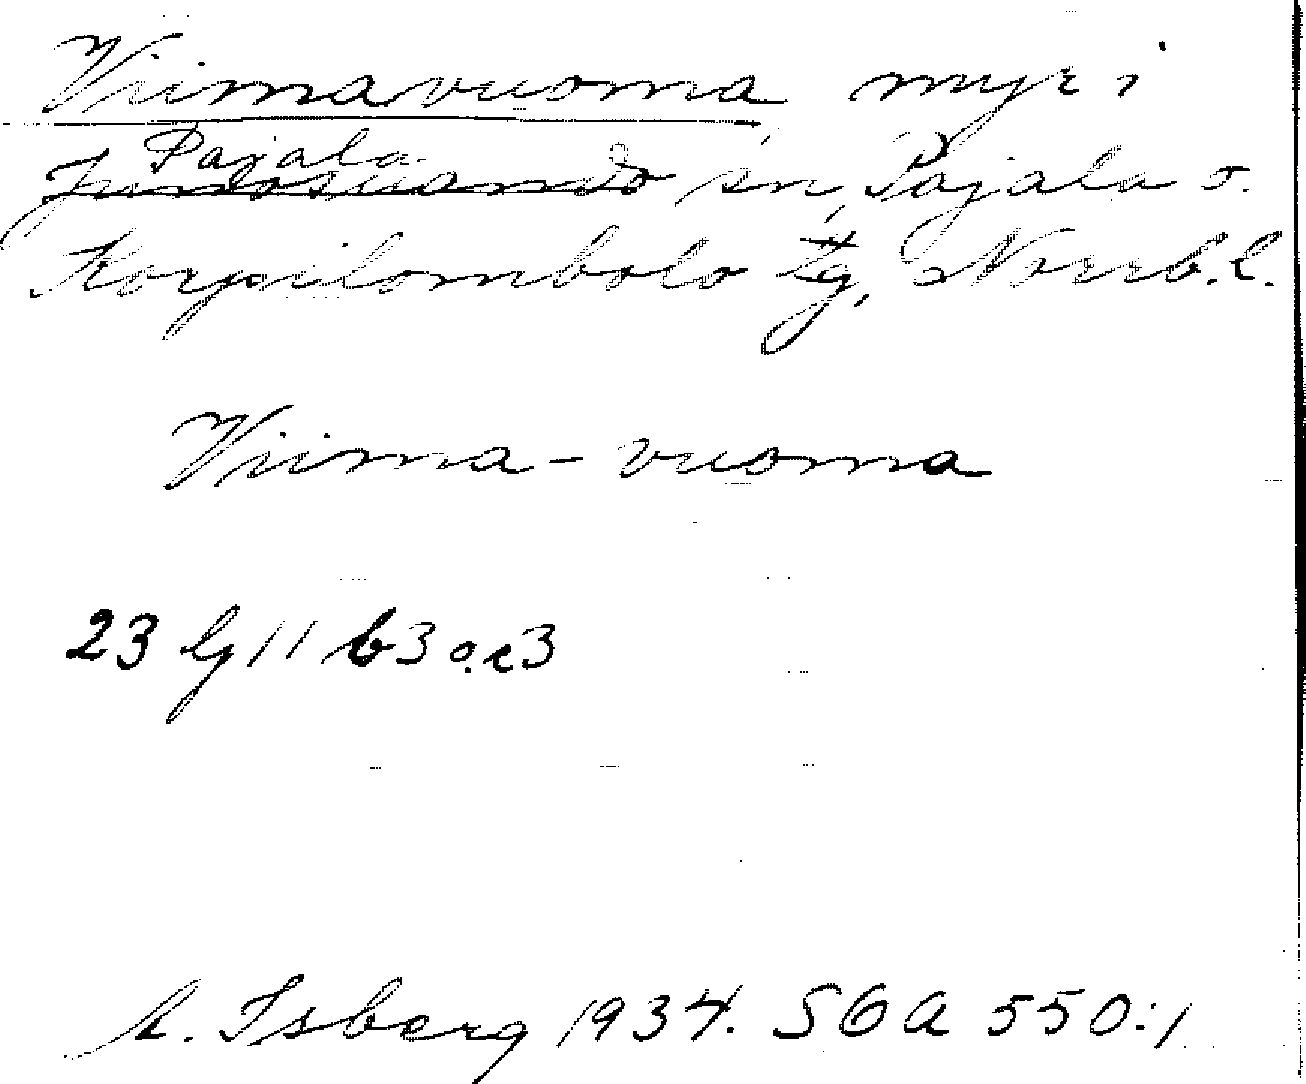 Viimavuoma myr i
Pajala
Junosuando sn, Pajala o.
Korpilombolo tg, Norrb.l.
Viima-vuoma
23 lg 11 b3 o. c3
A. Isberg 1934. SOA 550:1